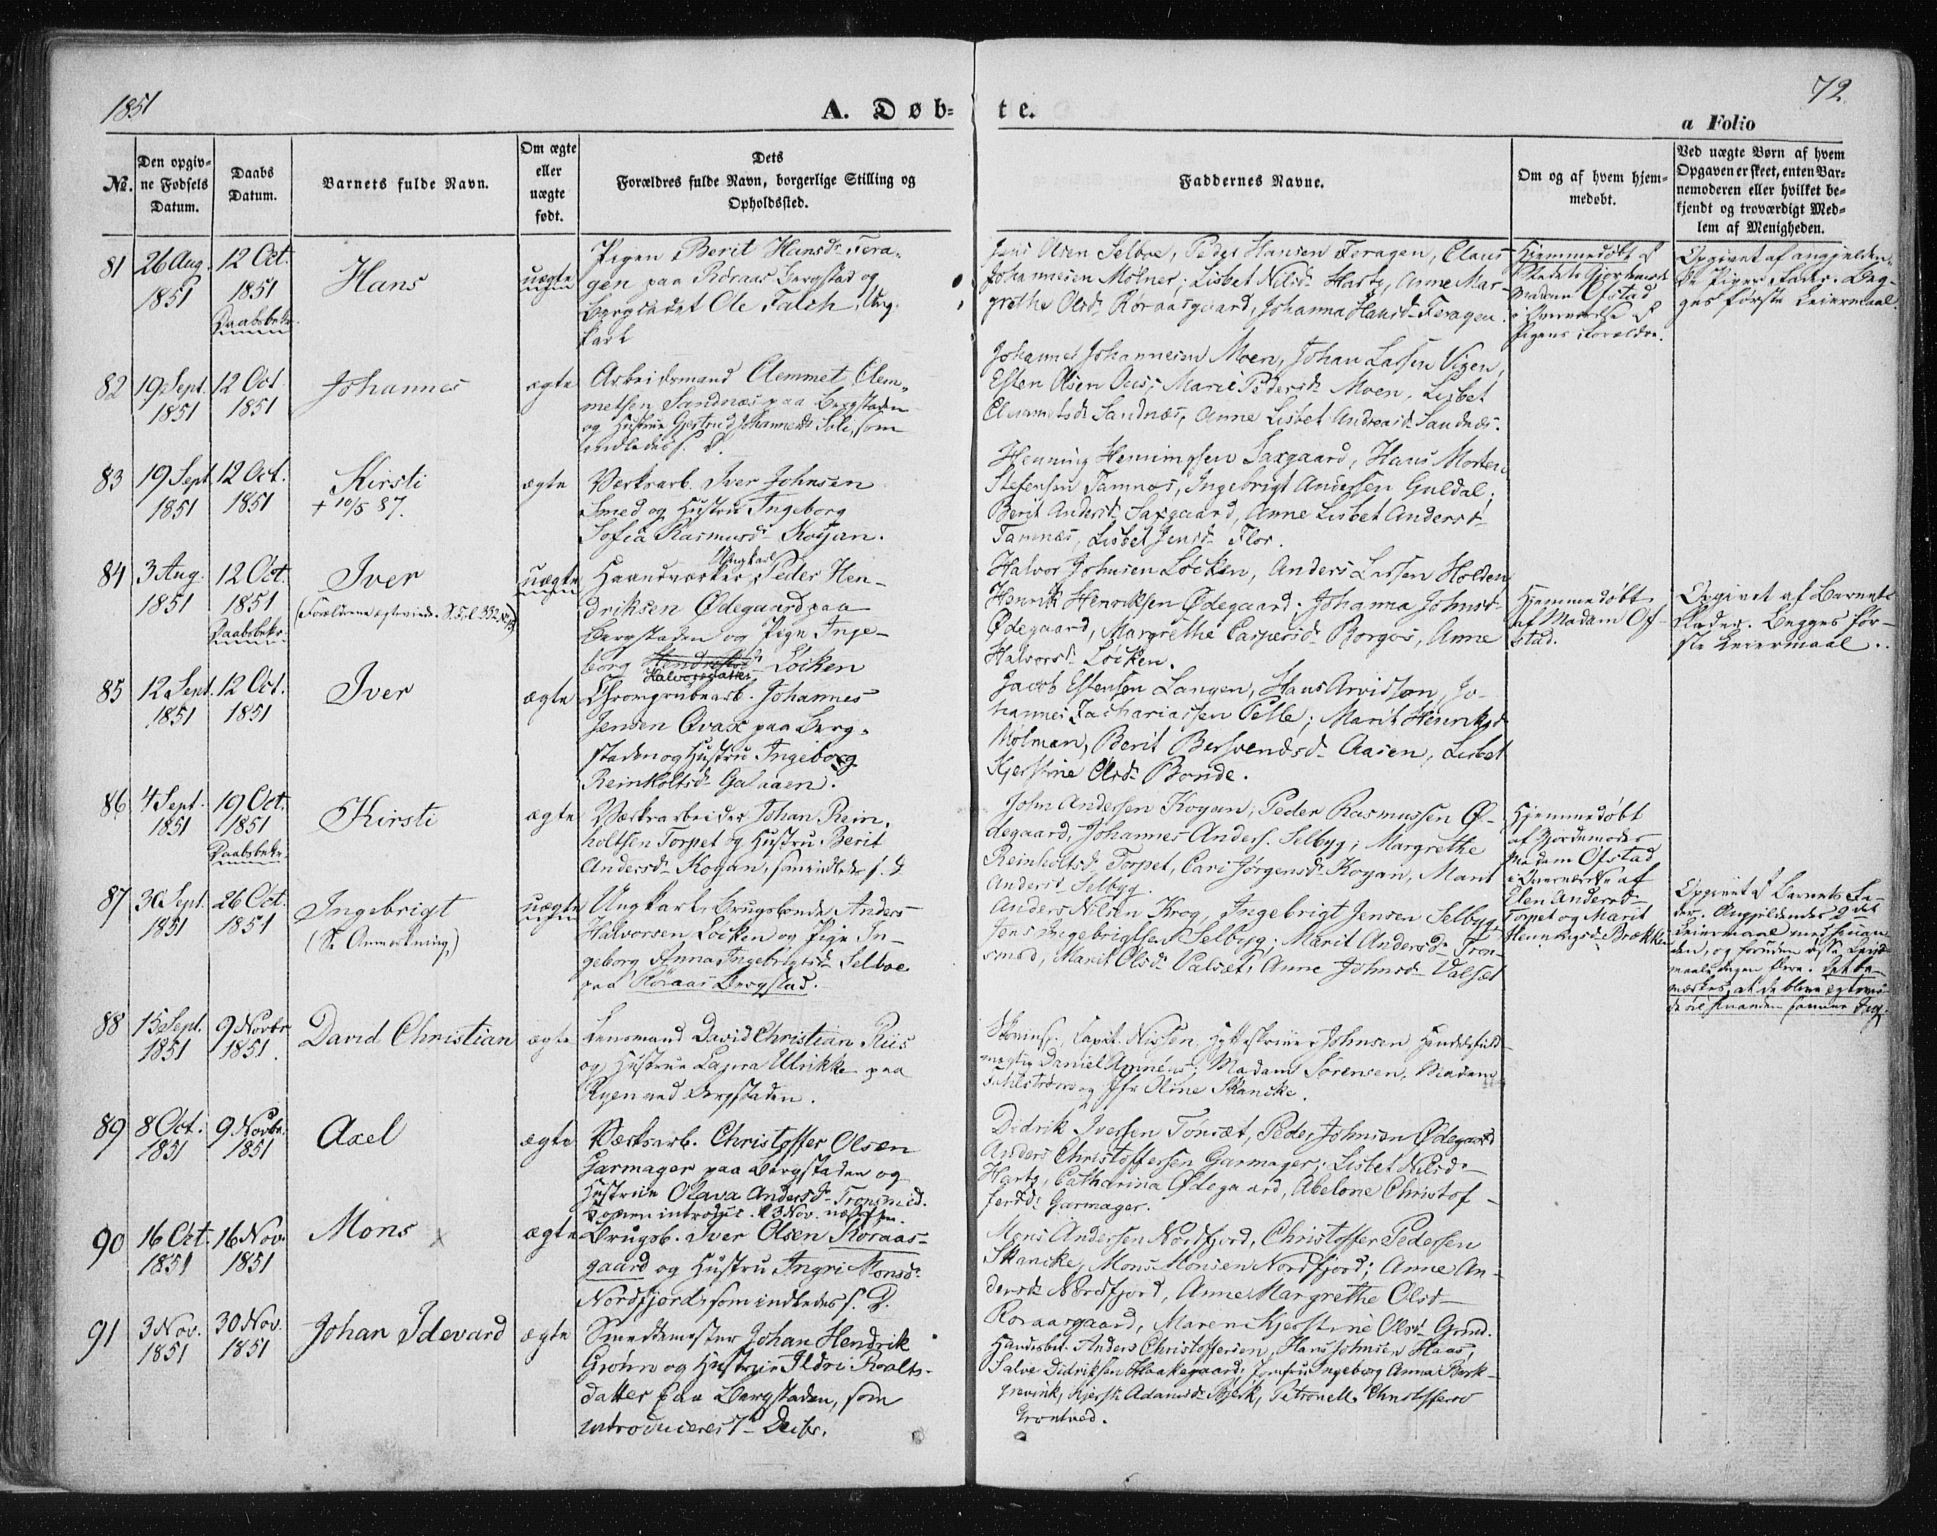 1851
A. Døb-
te.
72
a Folio
No.
Den opgiv-
ne Fødsels
Datum.
Daabs
Datum.
Barnets fulde Navn.
Om ægte
eller
uægte
født.
Dets
Forældres fulde Navn, borgerlige Stilling og
Opholdssted.
Faddernes Navne.
Om og af hvem hjem-
medøbt.
Ved uægte Børn af hvem
Opgaven er skeet, enten Bar-
nemoderen eller hvilket be-
kjendt og troværdigt Med-
lem af Menigheden.
81
26 Aug.
1851
12 Oct.
1851
Daabsbekr.
Hans
uægte
Pigen Berit Hansd. Fera-
gen paa Røraas Bergstad og
Ole Falch, Ung-
karl
Jens Olsen Selboe, Peder Hansen Feragen, Claus
Johannesen Mølner; Lisbet Nilsd. Hartz, Anne Mar-
grethe Olsd. Røraasgaard, Johanna Hansd. Feragen.
Hjemmedøbt
Madam Ofstad
Pigens Forældre.
Opgivet af
82
19 Sept.
1851
12 Oct.
1851
Johannes
ægte
Arbeidsmand Clemmet Clem-
metsen Sandnæs paa Bergstaden
og Hustru Gjertrud Johannesd. Soli, som
indledes s. D.
Johannes Johannesen Moen, Johan Larsen Vigen,
Esten Olsen Aas; Marie Pedersd. Moen, Lisbet
Clemmetsd. Sandnæs, Anne Lisbet Andreasd. Sandnæs.
83
19 Sept.
1851
12 Oct.
1851
Kirsti
+ 10/5 87.
ægte
Værksarb. Iver Johnsen
Smed og Hustru Ingeborg
Sofia Rasmusd. Kojan.
Henning Henningsen Saxgaard, Hans Morten
Stefensen Tamnes, Ingebrigt Andersen Guldal;
Berit Andersd. Saxgaard, Anne Lisbet Andersd.
Tamnæs, Lisbet Jensd. Flor.
84
3 Aug.
1851
12 Oct.
1851
Daabsbekr.
Iver
uægte
Ungkarl
Haandværker Peder Hen-
driksen Ødegaard paa
Bergstaden og Pige Inge-
borg Løcken
Halvorsdatter
Halvor Johnsen Løcken, Anders Larsen Holden
Henrik Henriksen Ødegaard. Johanna Johnsd.
Ødegaard, Margrethe Caspersd. Borgos, Anne
Halvorsd. Løcken.
Hjemmedøbt
af Madam Of-
stad.
Opgivet af Barnets
Fader. Begges før-
ste Leiermaal.
85
12 Sept.
1851
12 Oct.
1851
Iver
ægte
Chromgrubearb. Johannes
Jensen Qvasc paa Berg-
staden og Hustru Ingeborg
Reinholtsd. Galaaen.
Jacob Estensen Langen, Hans Arvidson, Jo-
hannes Zachariassen Pelle; Marit Henriksd.
Mølman, Berit Bersvendsd. Aasen, Lisbet
Kjerstine Olsd. Bonde.
86
4 Sept.
1851
19 Oct.
1851
Daabsbekr.
Kirsti
ægte
Værksarbeider Johan Rein-
holtsen Torpet og Hustru Berit
Andersd. Kojan, som indledes s. D.
John Andersen Kojan, Peder Rasmussen Ø-
degaard, Johannes Anders. Selbyg; Margrethe
Reinholtsd. Torpet, Cari Jørgensd. Kojan, Marit
Andersd. Selbyg.
Hjemmedøbt
af Gjordemoder
Madam Ofstad
i Overværelse af
Elen Andersd.
Torpet og Marit
Henningsd. Brækken
87
30 Sept.
1851
26 Oct.
1851
Ingebrigt
(S. Anmærkning.)
uægte
Ungkarl Brugsbonde Anders
Halvorsen Løcken og Pige In-
geborg Anna Ingebrigtsd. Selboe
paa Røraas Bergstad.
Anders Nilsen Krog, Ingebrigt Jensen Selbyg,
Jens Ingebrigtsen Selbyg; Marit Andersd. Tron-
smed, Marit Olsd. Valset, Anne Johnsd. Valset
Opgivet af Barnets Fa-
der.
88
15 Sept.
1851
9 Novbr.
1851.
David Christian
ægte
Lensmand David Christian Riis
og Hustrue Laura Ulrikke paa
Ryen ved Bergstaden.
Capit. Nissen, Hytteskriver Johnsen Handelsfuld-
mægtig Daniel Amnéus; Madam Sørensen, Madam
Fahlstrøm og Jfr. Oline Skancke.
89
8 Oct.
1851
9 Novbr.
1851
Axel
ægte
Værksarb. Christoffer Olsen
Garmager paa Bergstaden og
Hustrue Olava Andersd. Tronsmed.
Konen introduc. 23 Nov. næstefter.
Didrik Iversen Tønset, Peder Johnsen Ødegaard
Anders Christoffersen Garmager; Lisbet Nilsd.
Hartz, Catharina Ødegaard, Abelone Christof-
fersd. Garmager.
90
16 Oct.
1851
16 Nov.
1851
Mons
ægte
Brugsb. Iver Olsen Røraas-
gaard og Hustru Ingri Monsd.
Nordfjord, som indledes s. D.
Mons Andersen Nordfjord, Christoffer Pedersen
Skancke, Mons Monsen Nordfjord; Anne An-
dersd. Nordfjord, Anne Margrethe Olsd.
Røraasgaard, Maren Kjerstine Olsd. Grind.
91
3 Nov.
1851
30 Nov.
1851
Johan Idevard
ægte
Smeltemester Johan Hendrik
Grønn og Hustrue Ildri Roalts-
datter paa Bergstaden, som
introduceres 7de Decbr.
Handelsbet. Anders Christoffersen, Hans Johnsen Haas,
Salve Didriksen Haakegaard; Jomfru Ingeborg Anna Berk-
grevink, Kjersti Adamsd. Bjerk, Petronell. Christoffersd.
Grøntved.